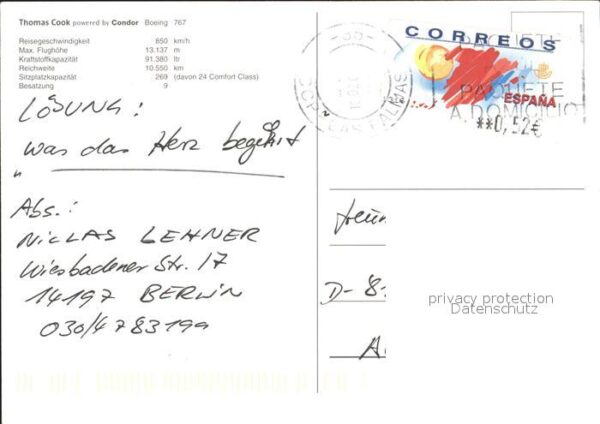 Thomas Cook powered by Condor Boeing 767
Reisegeschwindigkeit 850 km/h
Max. Flughöhe 13.137 m
Kraftstoffkapazität 91.380 ltr
Reichweite 10.550 km
Sitzplatzkapazität 269 (davon 24 Comfort Class)
Besatzung 9
LÖSUNG:
was das Herz begehrt
Abs.:
NICLAS LEHNER
Wiesbadener Str. 17
14197 BERLIN
030/4783199
CORREOS
ESPAÑA
PAQUETE
A DOMICILIO
**0,52€
D-8
privacy protection
Datenschutz